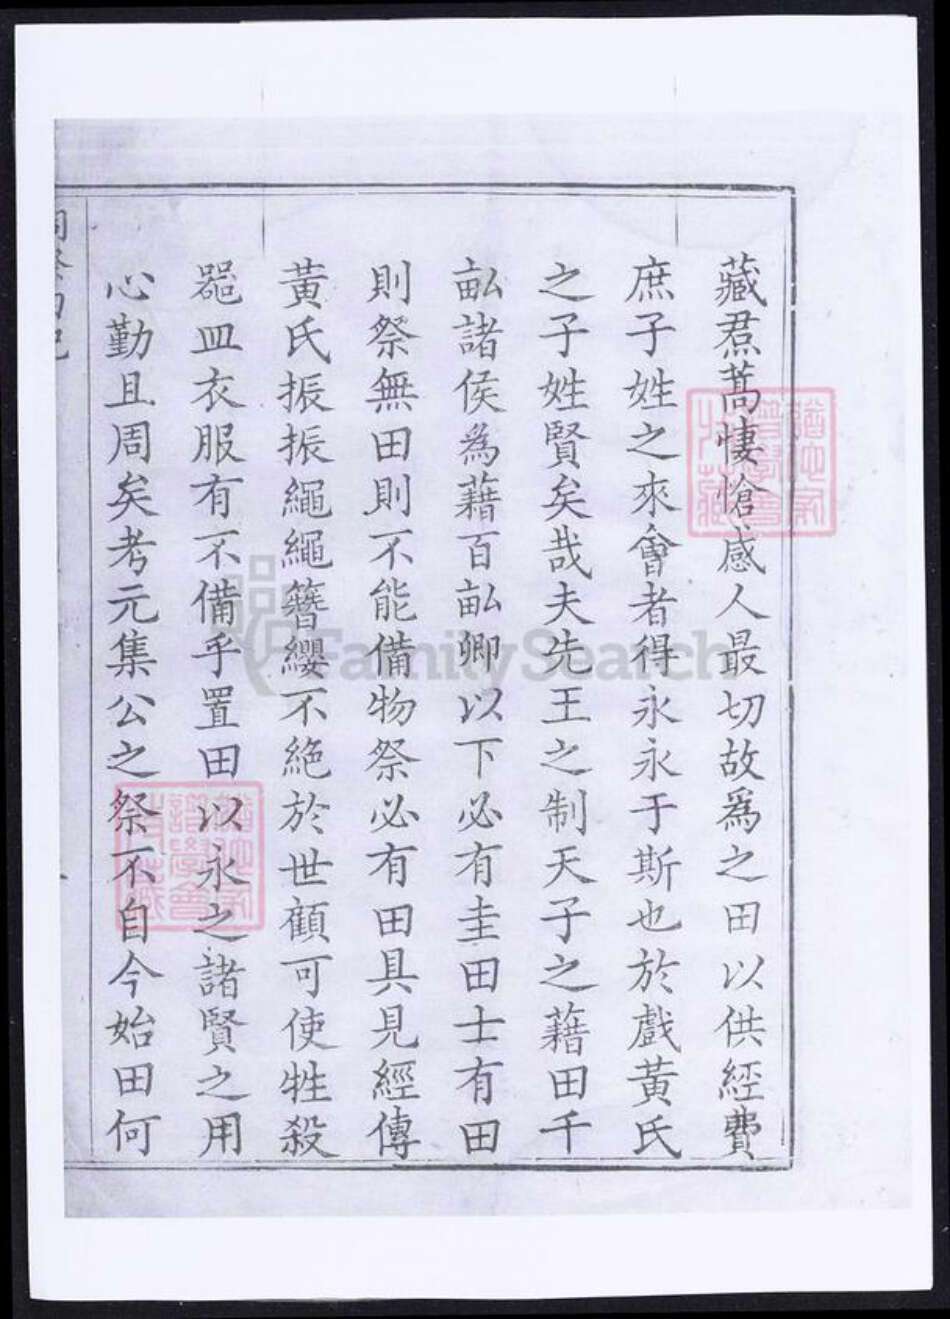 藏焄蒿悽愴感人最切故爲之田以供經費
庶子姓之來會者得永永于斯也於戲黃氏
之子姓賢矣哉夫先王之制天子之藉田千
畝諸侯爲藉百畝卿以下必有圭田士有田
則祭無田則不能備物祭必有田具見經傳
黃氏振振繩繩簪纓不絶於世顧可使牲殺
噐皿衣服有不備乎置田以永之諸賢之用
心勤且周矣考元集公之祭不自今始田何
祠祭田記
FamilySearch